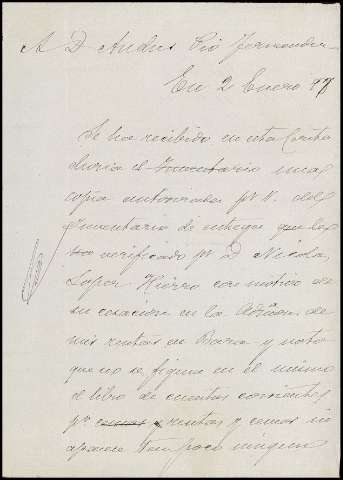 A D Andres Pio Fernandez
En 2 Enero 78
Se ha recibido en esta Conta
duria el Inventario una
copia autorizada pr V. del
Inventario de entrega que ha
verificado pr D Nicolas
Lopez Hierro con motivo de
su cesacion en la Admon de
mis rentas en Baza y noto
que no se figura en el mismo
el libro de cuentas corrientes
pr rentas y censos ni
aparece tampoco ningun